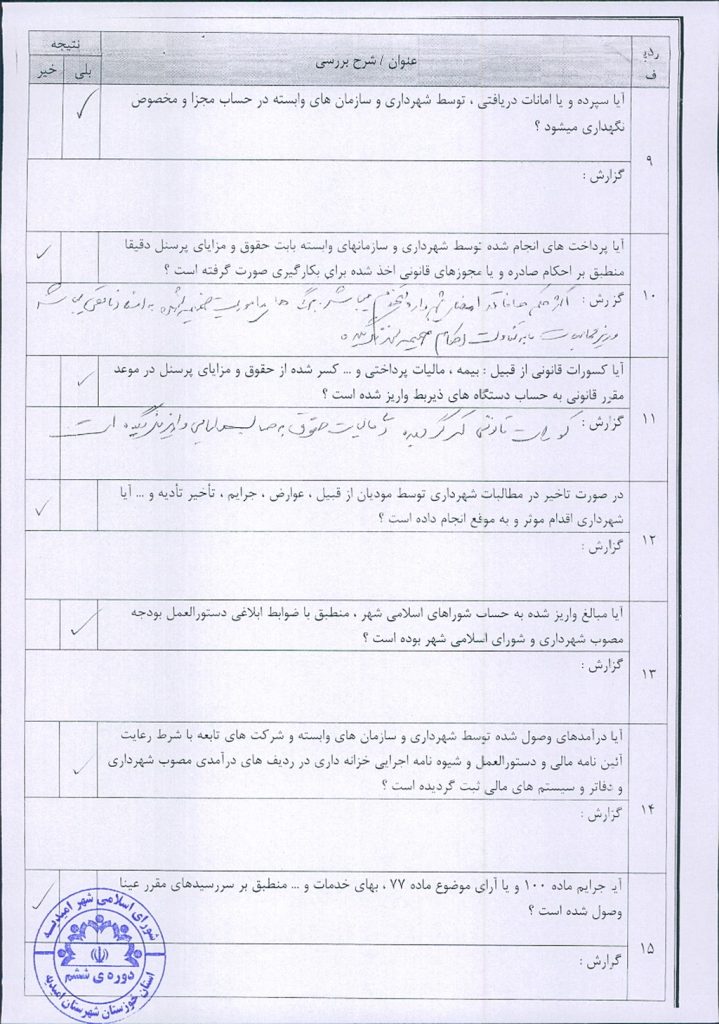 ردیف
عنوان / شرح بررسی
نتیجه
بلی
خیر
۹
آیا سپرده و یا امانات دریافتی ، توسط شهرداری و سازمان های وابسته در حساب مجزا و مخصوص
نگهداری میشود ؟
گزارش :
۱۰
آیا پرداخت های انجام شده توسط شهرداری و سازمانهای وابسته بابت حقوق و مزایای پرسنل دقیقا
منطبق بر احکام صادره و یا مجوزهای قانونی اخذ شده برای بکارگیری صورت گرفته است ؟
گزارش :
۱۱
آیا کسورات قانونی از قبیل : بیمه ، مالیات پرداختی و ... کسر شده از حقوق و مزایای پرسنل در موعد
مقرر قانونی به حساب دستگاه های ذیربط واریز شده است ؟
گزارش : کسورات قانونی کسر گردیده
۱۲
در صورت تاخیر در مطالبات شهرداری توسط مودیان از قبیل ، عوارض ، جرایم ، تأخیر تأدیه و ... آیا
شهرداری اقدام موثر و به موقع انجام داده است ؟
گزارش :
۱۳
آیا مبالغ واریز شده به حساب شوراهای اسلامی شهر ، منطبق با ضوابط ابلاغی دستورالعمل بودجه
مصوب شهرداری و شورای اسلامی شهر بوده است ؟
گزارش :
۱۴
آیا درآمدهای وصول شده توسط شهرداری و سازمان های وابسته و شرکت های تابعه با شرط رعایت
آئین نامه مالی و دستورالعمل و شیوه نامه اجرایی خزانه داری در ردیف های درآمدی مصوب شهرداری
و دفاتر و سیستم های مالی ثبت گردیده است ؟
گزارش :
۱۵
آیا جرایم ماده ۱۰۰ و یا آرای موضوع ماده ۷۷ ، بهای خدمات و ... منطبق بر سررسیدهای مقرر عینا
وصول شده است ؟
گزارش :
شورای اسلامی شهر امیدیه
دوره ی ششم
استان خوزستان شهرستان امیدیه